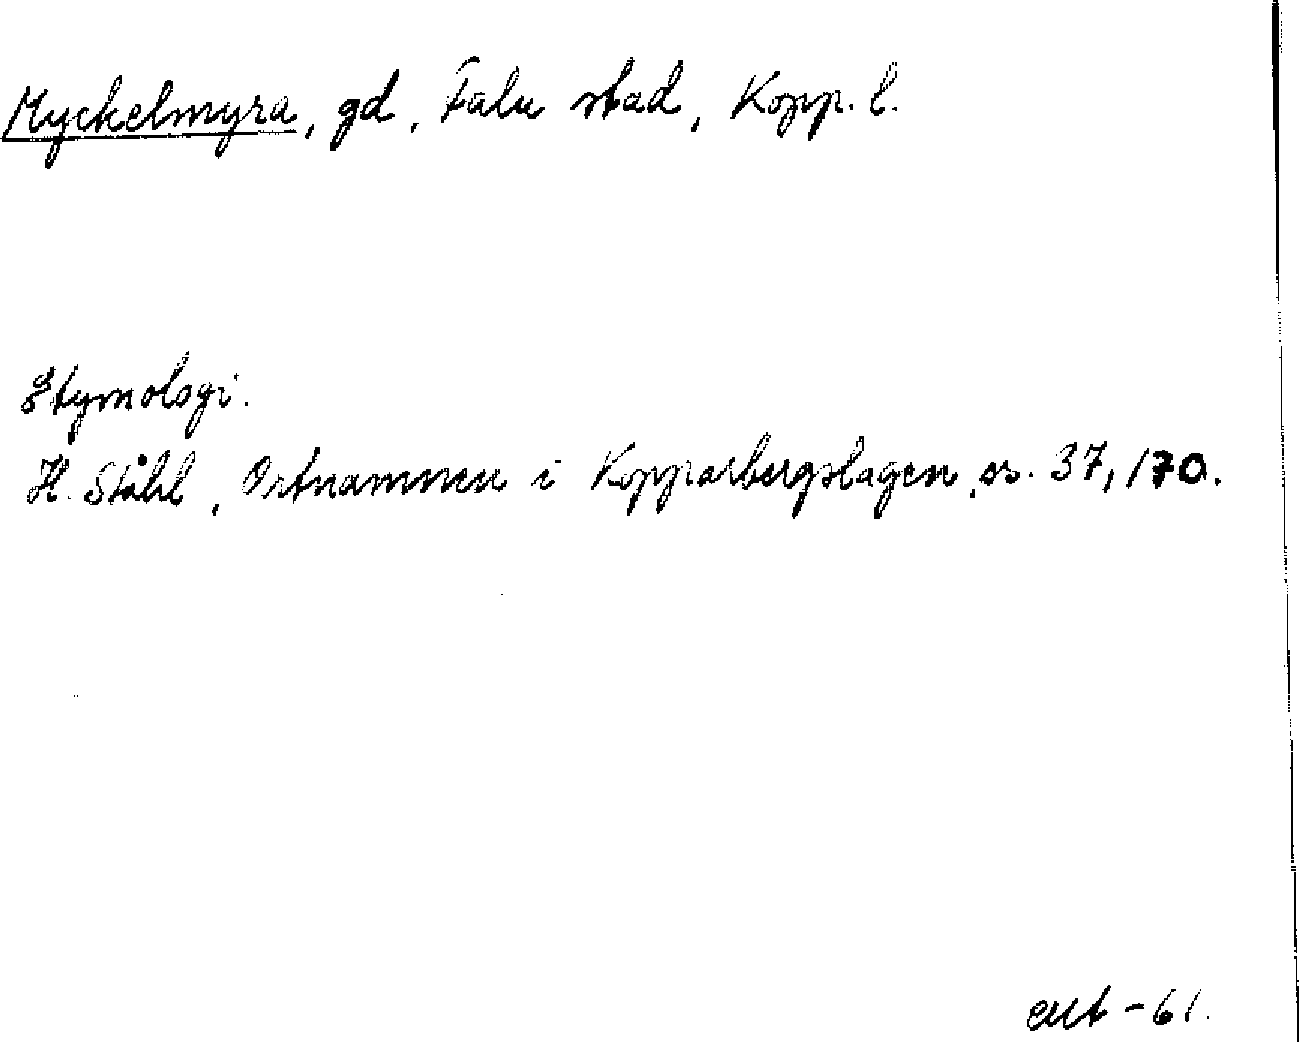 Myckelmyra, gd, Falu stad, Kopp. l.
Etymologi.
H. Ståhl, Ortnamnen i Kopparbergslagen, ss. 37, 170.
-61.